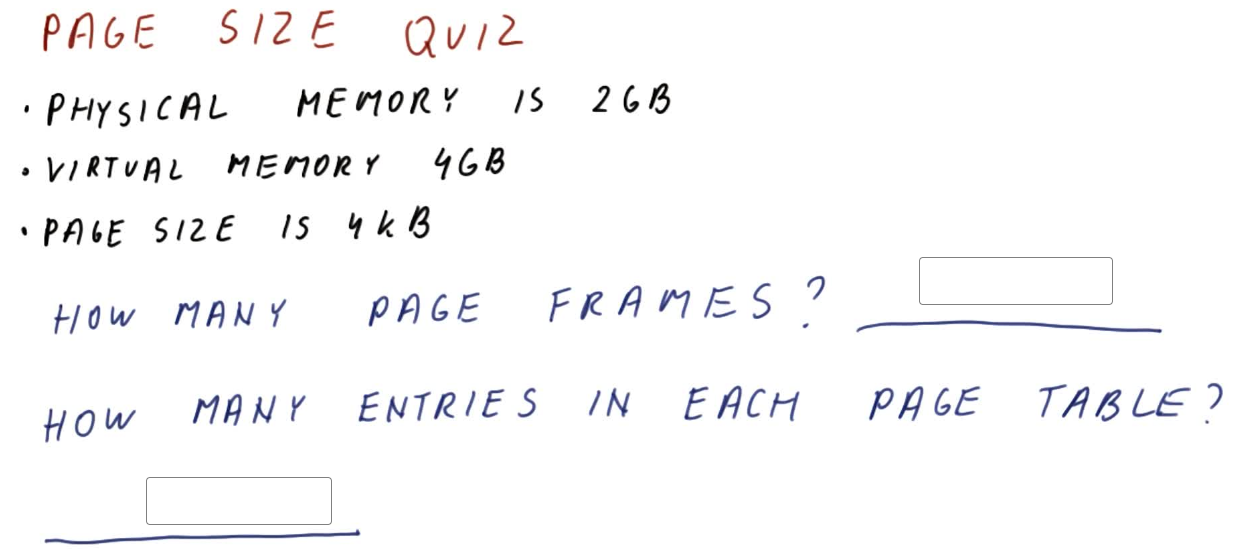 PAGE SIZE QUIZ
• PHYSICAL MEMORY IS 2GB
• VIRTUAL MEMORY 4GB
• PAGE SIZE IS 4kB
HOW MANY PAGE FRAMES?
HOW MANY ENTRIES IN EACH PAGE TABLE?